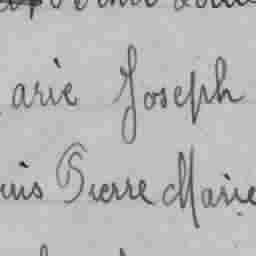 arie Joseph
uis Pierre Marie